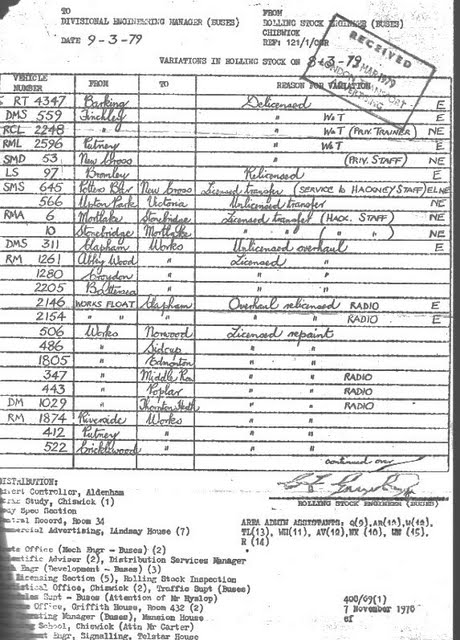 TO
FROM
DIVISIONAL ENGINEERING MANAGER (BUSES)
ROLLING STOCK ENGINEER (BUSES)
CHISWICK
DATE 9-3-79
REF: 121/1/
VARIATIONS IN ROLLING STOCK ON 8-3-79
RECEIVED
MAR 1979
LONDON TRANSPORT
ADVERTISING
VEHICLE NUMBER FROM TO REASON FOR VARIATION
RT 4347 Barking Delicensed E
DMS 559 Finchley " W&T E
RCL 2248 " " W&T (PRIV. TRAINER) NE
RML 2596 Putney " W&T E
SMD 53 New Cross " (PRIV. STAFF) NE
LS 97 Bromley Relicensed E
SMS 645 Potters Bar New Cross Licensed transfer (SERVICE to HACKNEY STAFF) E/NE
566 Upton Park Victoria Unlicensed transfer NE
RMA 6 Mortlake Stonebridge Licensed transfer (HACK. STAFF) NE
10 Stonebridge Mortlake " " ( " " ) NE
DMS 311 Clapham Works Unlicensed overhaul E
RM 1261 Abbey Wood " Licensed "
1280 Croydon " " "
2205 Battersea " " "
2146 WORKS FLOAT Clapham Overhaul relicensed RADIO E
2154 " " " " " RADIO E
506 Works Norwood Licensed repaint
486 " Sidcup " "
1805 " Edmonton " "
347 " Middle Row " " RADIO
443 " Poplar " " RADIO
DM 1029 " Thornton Heath " " RADIO
RM 1874 Riverside Works " "
412 Putney " " "
522 Cricklewood " " "
continued over
DISTRIBUTION:
ROLLING STOCK ENGINEER (BUSES)
Advert Controller, Aldenham
Study, Chiswick (1)
Spec Section
Central Record, Room 34
Commercial Advertising, Lindsay House (7)
AREA ADMIN ASSISTANTS: Q(9), AR(10), W(18),
TL(13), WH(11), AV(12), NX (10), UX (15),
R (14)
Office (Mech Engr - Buses) (2)
Scientific Adviser (2), Distribution Services Manager
Engr (Development - Buses) (3)
Licensing Section (5), Rolling Stock Inspection
Office, Chiswick (2), Traffic Supt (Buses)
Supt - Buses (Attention of Mr Hyslop)
Office, Griffith House, Room 432 (2)
Operating Manager (Buses), Mansion House
School, Chiswick (Attn Mr Carter)
Engr, Signalling, Telstar House
400/69(1)
7 November 1978